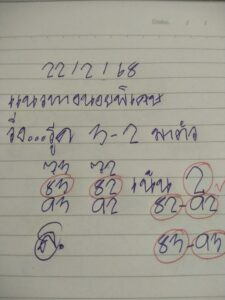 22/2/68
แนวทางหน่อยพิเศษ
วิ่ง...รูด 3-2 มาตัว
73 72
83 82 เน้น 2
93 92 82-92
83-93